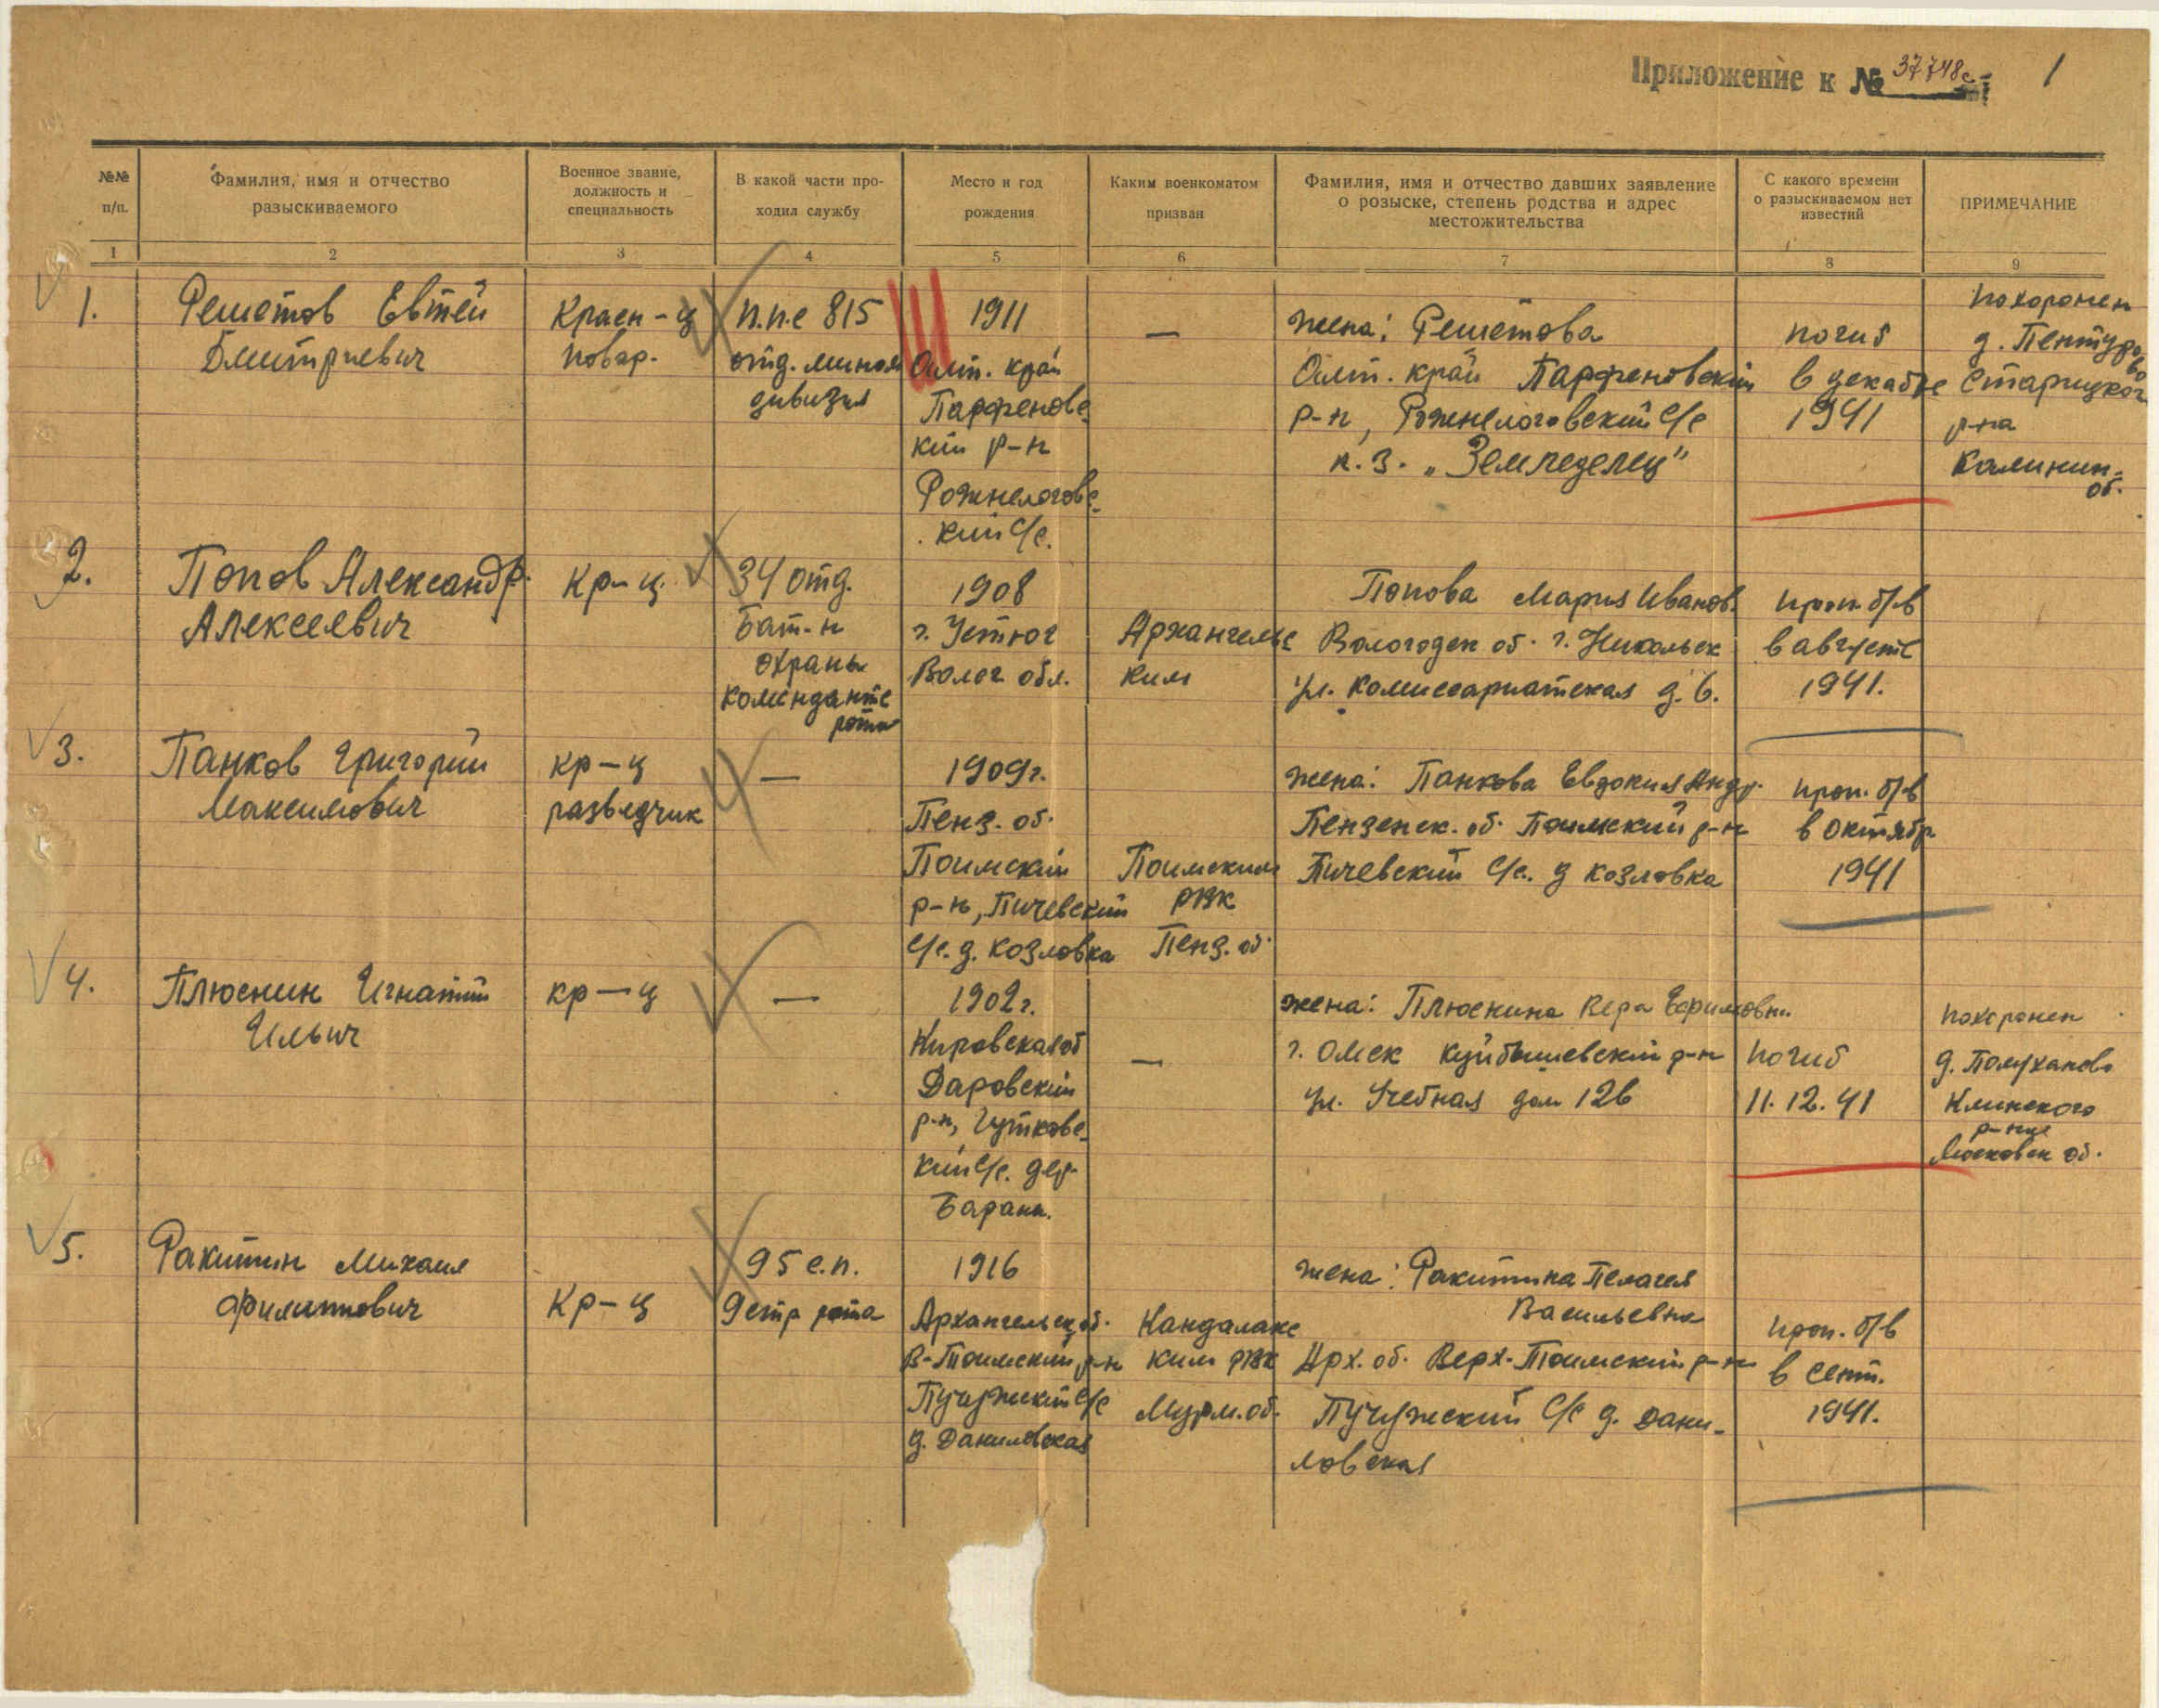 Приложение к № 37748с
1
№№ п/п.
Фамилия, имя и отчество разыскиваемого
Военное звание, должность и специальность
В какой части проходил службу
Место и год рождения
Каким военкоматом призван
Фамилия, имя и отчество давших заявление о розыске, степень родства и адрес местожительства
С какого времени о разыскиваемом нет известий
ПРИМЕЧАНИЕ
1 2 3 4 5 6 7 8 9
1.
Решетов Евтей
Дмитриевич
Красн-ц
повар.
п.п.с 815
отд. мином
дивизия
1911
Алт. край
Парфеновс-
кий р-н
Рожнелоговс-
кий с/с.
—
жена: Решетова
Алт. край Парфеновский
р-н, Рожнелоговский с/с
к.з. „Земледелец"
погиб
в декабре
1941
похоронен
д. Пентурово
Старицког
р-на
Калинин-
об.
2.
Попов Александр.
Алексеевич
Кр-ц.
34 отд.
Бат-н
охраны
комендантс
роты
1908
г. Устюг
Волог обл.
Архангельс
ким
Попова Мария Иванов.
Вологодск об. г. Никольск
ул. Комиссариатская д. 6.
проп. б/в
в августе
1941.
3.
Панков Григорий
Максимович
кр-ц
разведчик
—
1909г.
Пенз. об.
Поимский
р-н, Пичевский
с/с. д. Козловка
Поимским
РВК
Пенз. об.
жена: Панкова Евдокия Андр.
Пензенск. об. Поимский р-н
Пичевский с/с. д Козловка
проп. б/в
в октябр
1941
4.
Плюснин Игнатий
Ильич
кр-ц
—
1902г.
Кировская об
Даровский
р-н, Гутковс-
кий с/с. дер.
Баран.
—
жена: Плюснина Вера Ефимовн.
г. Омск Куйбышевский р-н
ул. Учебная дом 126
погиб
11.12.41
похоронен
д. Полуханово
Клинского
р-на
Московск об.
5.
Ракитин Михаил
Филиппович
Кр-ц
95 с.п.
9 стр рота
1916
Архангельск об.
В-Тоимский р-н
Пучужский с/с
д. Даниловская
Кандалакс
ким РВК
Мурм. об.
жена: Ракитина Пелагея
Васильевна
Арх. об. Верх-Тоимский р-н
Пучужский с/с д. Дани-
ловская
проп. б/в
в сент.
1941.